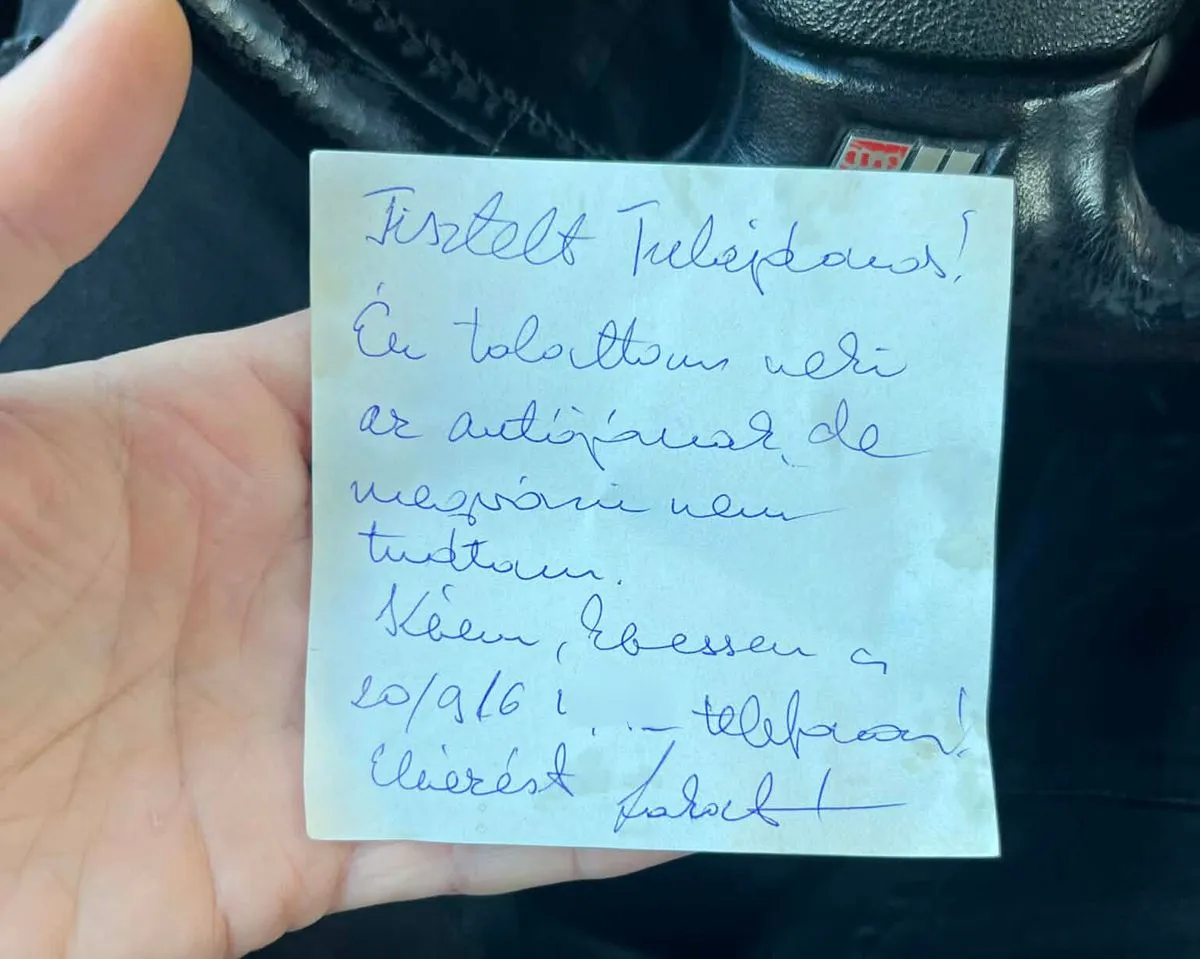 Tisztelt Tulajdonos!
Én tolattam neki
az autójának, de
megvárni nem
tudtam.
Kérem, keressen a
20/916 telefonon!
Elnézést